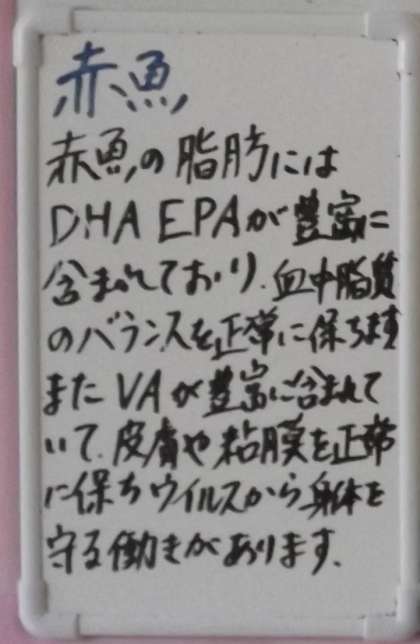 赤魚
赤魚の脂肪には
DHA EPAが豊富に
含まれており、血中脂質
のバランスを正常に保ちます
またVAが豊富に含まれて
いて、皮膚や粘膜を正常
に保ちウイルスから身体を
守る働きがあります。